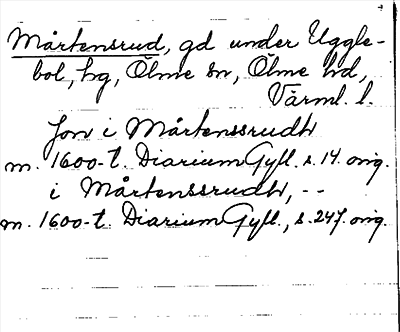 Mårtensrud, gd under Uggle-
bol, hg, Ölme sn, Ölme hd,
Värml. l.
Jon i Mårtenssrudh
m. 1600-t. Diarium Gyll. s. 14. orig.
i Mårtenssrudh, --
m. 1600-t. Diarium Gyll., s. 247. orig.